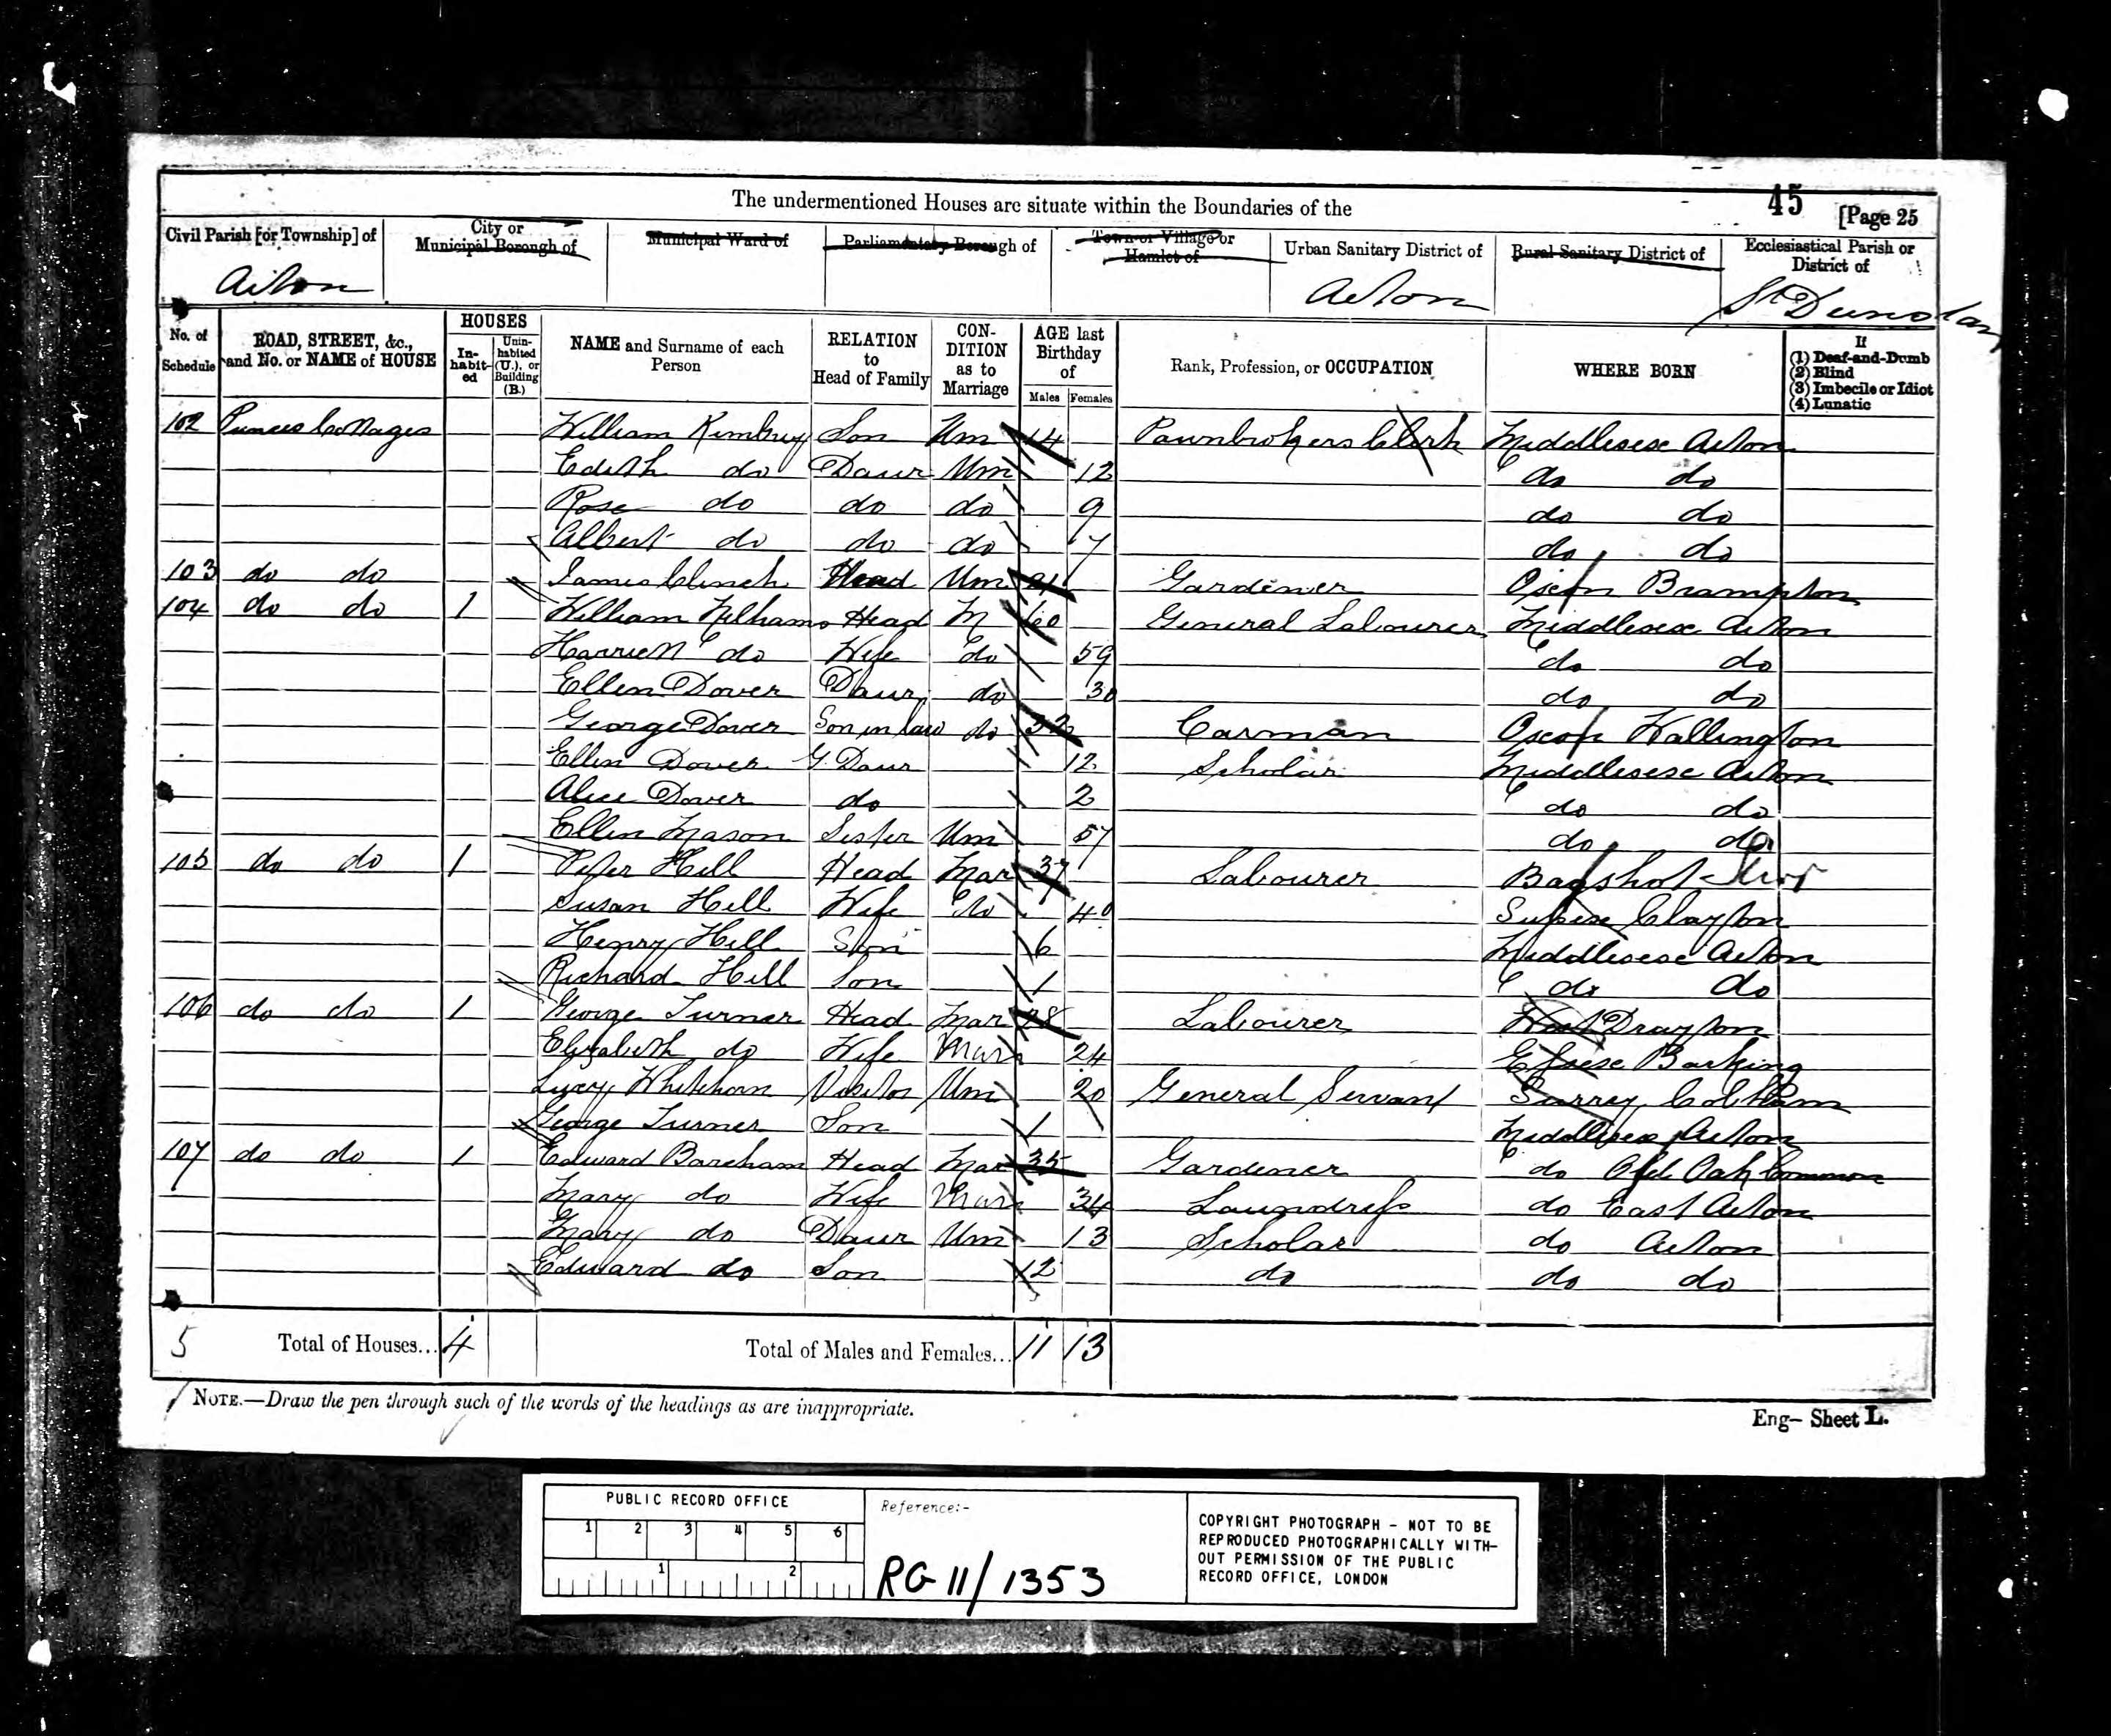 The undermentioned Houses are situate within the Boundaries of the
45 [Page 25
Civil Parish [or Township] of
City or Municipal Borough of
Municipal Ward of
Parliamentary Borough of
Town or Village or Hamlet of
Urban Sanitary District of
Rural Sanitary District of
Ecclesiastical Parish or District of
Acton Acton St Dunstan
No. of Schedule
ROAD, STREET, &c., and No. or NAME of HOUSE
HOUSES
In-habit-ed
Unin-habited (U.), or Building (B.)
NAME and Surname of each Person
RELATION to Head of Family
CON-DITION as to Marriage
AGE last Birthday of
Males Females
Rank, Profession, or OCCUPATION
WHERE BORN
If
(1) Deaf-and-Dumb
(2) Blind
(3) Imbecile or Idiot
(4) Lunatic
102 Cottages William Son Um 14 Pawnbrokers Clerk Middlesex Acton
Edith do Daur Um 12 do do
Rose do do do 9 do do
Albert do do do 7 do do
103 do do James Clinch Head Um 21 Gardener Oxon Brampton
104 do do 1 William Head M 60 General Labourer Middlesex Acton
Harriett do Wife do 59 do do
Ellen Dover Daur do 30 do do
George Dover Son in law do 32 Carman Oxon Wallington
Ellen Dover G. Daur 12 Scholar Middlesex Acton
Alice Dover do 2 do do
Ellen Mason Sister Um 57 do do
105 do do 1 Peter Hill Head Mar 37 Labourer Bagshot
Susan Hill Wife do 40 Sussex Clayton
Henry Hill Son 6 Middlesex Acton
Richard Hill Son 1 do do
106 do do 1 George Turner Head Mar 28 Labourer West Drayton
Elizabeth do Wife Mar 24 Essex Barking
Lucy Whitehorn Visitor Um 20 General Servant Surrey Cobham
George Turner Son 1 Middlesex Acton
107 do do 1 Edward Bareham Head Mar 35 Gardener do Old Oak Common
Mary do Wife Mar 34 Laundress do East Acton
Mary do Daur Um 13 Scholar do Acton
Edward do Son 12 do do do
5 Total of Houses... 4 Total of Males and Females... 11 13
NOTE.—Draw the pen through such of the words of the headings as are inappropriate.
Eng– Sheet L.
PUBLIC RECORD OFFICE
1 2 3 4 5 6
1 2
Reference:-
RG 11/1353
COPYRIGHT PHOTOGRAPH - NOT TO BE
REPRODUCED PHOTOGRAPHICALLY WITH-
OUT PERMISSION OF THE PUBLIC
RECORD OFFICE, LONDON